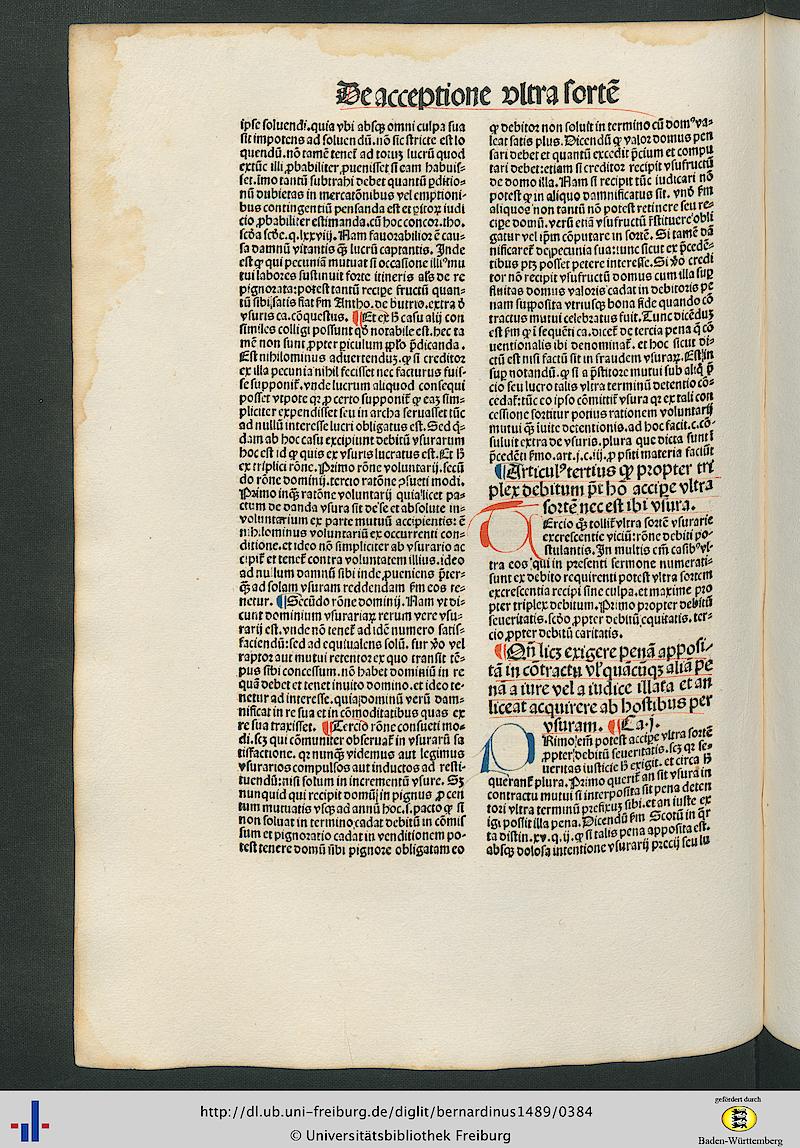 De acceptione vltra sortē
ipse soluendi. quia vbi absqꝫ omni culpa sua
sit impotens ad soluendū. nō sic stricte est lo
quendū. nō tamē tenet̄ ad totuꝫ lucrū quod
extūc illi ꝓbabiliter ꝓuenisset si eam habuis-
set. imo tantū subtrahi debet quantū ꝓditio-
nū dubietas in mercatōnibus vel emptioni-
bus contingentiū pensanda est et ꝑitoꝝ iudi
cio ꝓbabiliter estimanda. cū hoc concor. tho.
scd̄a scd̄e. q. lxxviij. Nam fauorabilior ē cau-
sa damnū vitantis qꝫ lucrū captantis. Inde
est ꝙ qui pecuniā mutuat si occasione illiꝰ mu
tui labores sustinuit forte itineris als̄ de re
pignorata: potest tantū recipe fructū quan-
tū sibi satis fiat sm̄ Antho. de butrio. extra d̓
vsuris ca. cōquestus. ¶ Et ex h̄ casu alij con
similes colligi possunt qd̄ notabile est. hec ta
mē non sunt ꝓpter ꝑiculum ꝓplo p̄dicanda.
Est nihilominus aduertenduꝫ. ꝙ si creditor
ex illa pecunia nihil fecisset nec facturus fuis-
se supponit̄. vnde lucrum aliquod consequi
posset vtpote qꝛ ꝓ certo supponit̄ ꝙ eaꝫ sim-
pliciter expendisset seu in archa seruasset tūc
ad nullū interesse lucri obligatus est. Sed q̄-
dam ab hoc casu excipiunt debitū vsurarum
hoc est id ꝙ quis ex vsuris lucratus est. Et h̄
ex triplici rōne. Primo rōne voluntarij. secū
do rōne dominij. tercio ratōne ꝯsueti modi.
Primo inqꝫ ratōne voluntarij quia licet pa-
ctum de danda vsura sit de se et absolute in-
voluntarium ex parte mutuū accipientis: ē
nihilominus voluntariū ex occurrenti con-
ditione. et ideo nō simpliciter ab vsurario ac
cipit̄ et tenet̄ contra voluntatem illius. ideo
ad nullum damnū sibi inde ꝓueniens p̄ter-
qꝫ ad solam vsuram reddendam sm̄ eos te-
netur. ¶ Secūdo rōne dominij. Nam vt di-
cunt dominium vsurariaꝝ rerum vere vsu-
rarij est. vnde nō tenet̄ ad idē numero satis-
faciendū: sed ad equiualens solū. fur v̓o vel
raptor aut mutui retentor ex quo transit tē-
pus sibi concessum. nō habet dominiū in re
quā debet et tenet inuito domino. et ideo te-
netur ad interesse. quia dominū verū dam-
nificat in re sua et in cōmoditatibus quas ex
re sua traxisset. ¶ Tercio rōne consueti mo-
di. scꝫ qui cōmuniter obseruat̄ in vsurarū sa
tisfactione. qꝛ nunqꝫ videmus aut legimus
vsurarios compulsos aut inductos ad resti-
tuendū: nisi solum in incrementū vsure. Sꝫ
nunquid qui recipit domū in pignus ꝓ cen
tum mutuatis vsqꝫ ad annū hoc. s. pacto ꝙ si
non soluat in termino cadat debitū in cōmis
sum et pignoratio cadat in venditionem po-
test tenere domū sibi pignore obligatam eo
ꝙ debitor non soluit in termino cū domꝰ va-
leat satis plus. Dicendū ꝙ valor domus pen
sari debet et quantū excedit p̄cium et compu
tari debet: etiam si creditor recipit vsufructū
de domo illa. Nam si recipit tūc iudicari nō
potest ꝙ in aliquo damnificatus sit. vnd̓ sm̄
aliquos non tantū nō potest retinere seu re-
cipe domū. verū etiā vsufructū r̄stituere obli
gatur vel ip̄m cōputare in sortē. Si tamē dā
nificaret̄ de pecunia sua: tunc sicut ex p̄cedē-
tibus ptꝫ posset petere interesse. Si v̓o credi
tor nō recipit vsufructū domus cum illa sup
finitas domus valoris cadat in debitoris pe
nam supposita vtriusqꝫ bona fide quando cō
tractus mutui celebratus fuit. Tunc dicēduꝫ
est sm̄ ꝙ i sequēti ca. dicet̄ de tercia pena q̄ cō
uentionalis ibi denominat̄. et hoc sicut di-
ctū est nisi factū sit in fraudem vsuraꝝ. Est in
sup notandū. ꝙ si a p̄stitore mutui sub aliq̄ p̄
cio seu lucro talis vltra terminū detentio cō-
cedat̄: tūc eo ipso cōmittit̄ vsura qꝛ ex tali con
cessione sortitur potius rationem voluntarij
mutui qꝫ inuite detentionis. ad hoc facit. c. cō-
suluit extra de vsuris. plura que dicta sunt i
p̄cedēti ꝑmo. art. j. c. iij. ꝓ p̄siti materia faciūt
¶ Articulꝰ tertius ꝙ propter tri
plex debitum p̄t hō accipe vltra
sortē nec est ibi vsura.
Tercio qꝫ tollit̄ vltra sortē vsurarie
excrescentie viciū: rōne debiti po-
stulantis. In multis em̄ casibꝰ vl-
tra eos qui in presenti sermone numerati-
sunt ex debito requirenti potest vltra sortem
excrescentia recipi sine culpa. et maxime pro
pter triplex debitum. Primo propter debitū
seueritatis. scd̄o ꝓpter debitū equitatis. ter-
cio ꝓpter debitū caritatis.
¶ Qn̄ licꝫ exigere penā apposi-
tā in cōtractu vl̓ quācūqꝫ aliā pe
nā a iure vel a iudice illata et an
liceat acquirere ab hostibus per
vsuram. ¶ Ca. j.
Primo em̄ potest accipe vltra sortē
ꝓpter debitū seueritatis. scꝫ qꝛ se-
ueritas iusticie h̄ exigit. et circa h̄
querant̄ plura. Primo querit̄ an sit vsura in
contractu mutui si interposita sit pena deten
tori vltra terminū prefixuꝫ sibi. et an iuste ex
igi possit illa pena. Dicendū sm̄ Scotū in q̄r
ta distin. xv. q. ij. ꝙ si talis pena apposita est.
absqꝫ dolosa intentione vsurarij precij seu lu
http://dl.ub.uni-freiburg.de/diglit/bernardinus1489/0384
© Universitätsbibliothek Freiburg
gefördert durch
Baden-Württemberg